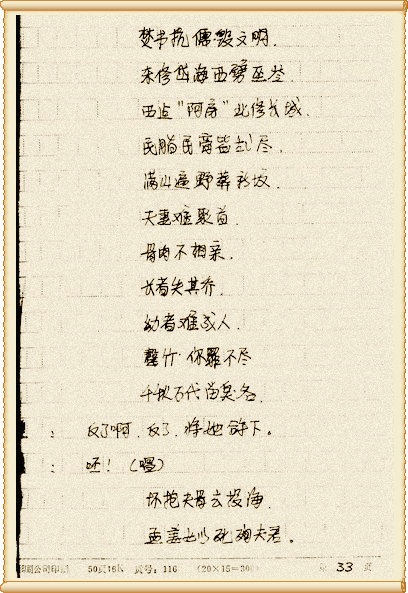 焚书坑儒毁文明.
东修 海西劈巫
西造“阿房”北修长城.
民脂民膏皆刮尽.
满山遍野葬新坟.
夫妻难聚首.
骨肉不相亲.
长者失其
幼者难成人.
罄竹 你罪不尽
千秋万代留恶名.
: 反了啊. 反了. 将她拿下。
: 呸! (唱)
怀抱夫骨去投海.
孟姜 以死殉夫君。
印刷公司印 50页16K 页号: 116 (20×15=300) 第 33 页